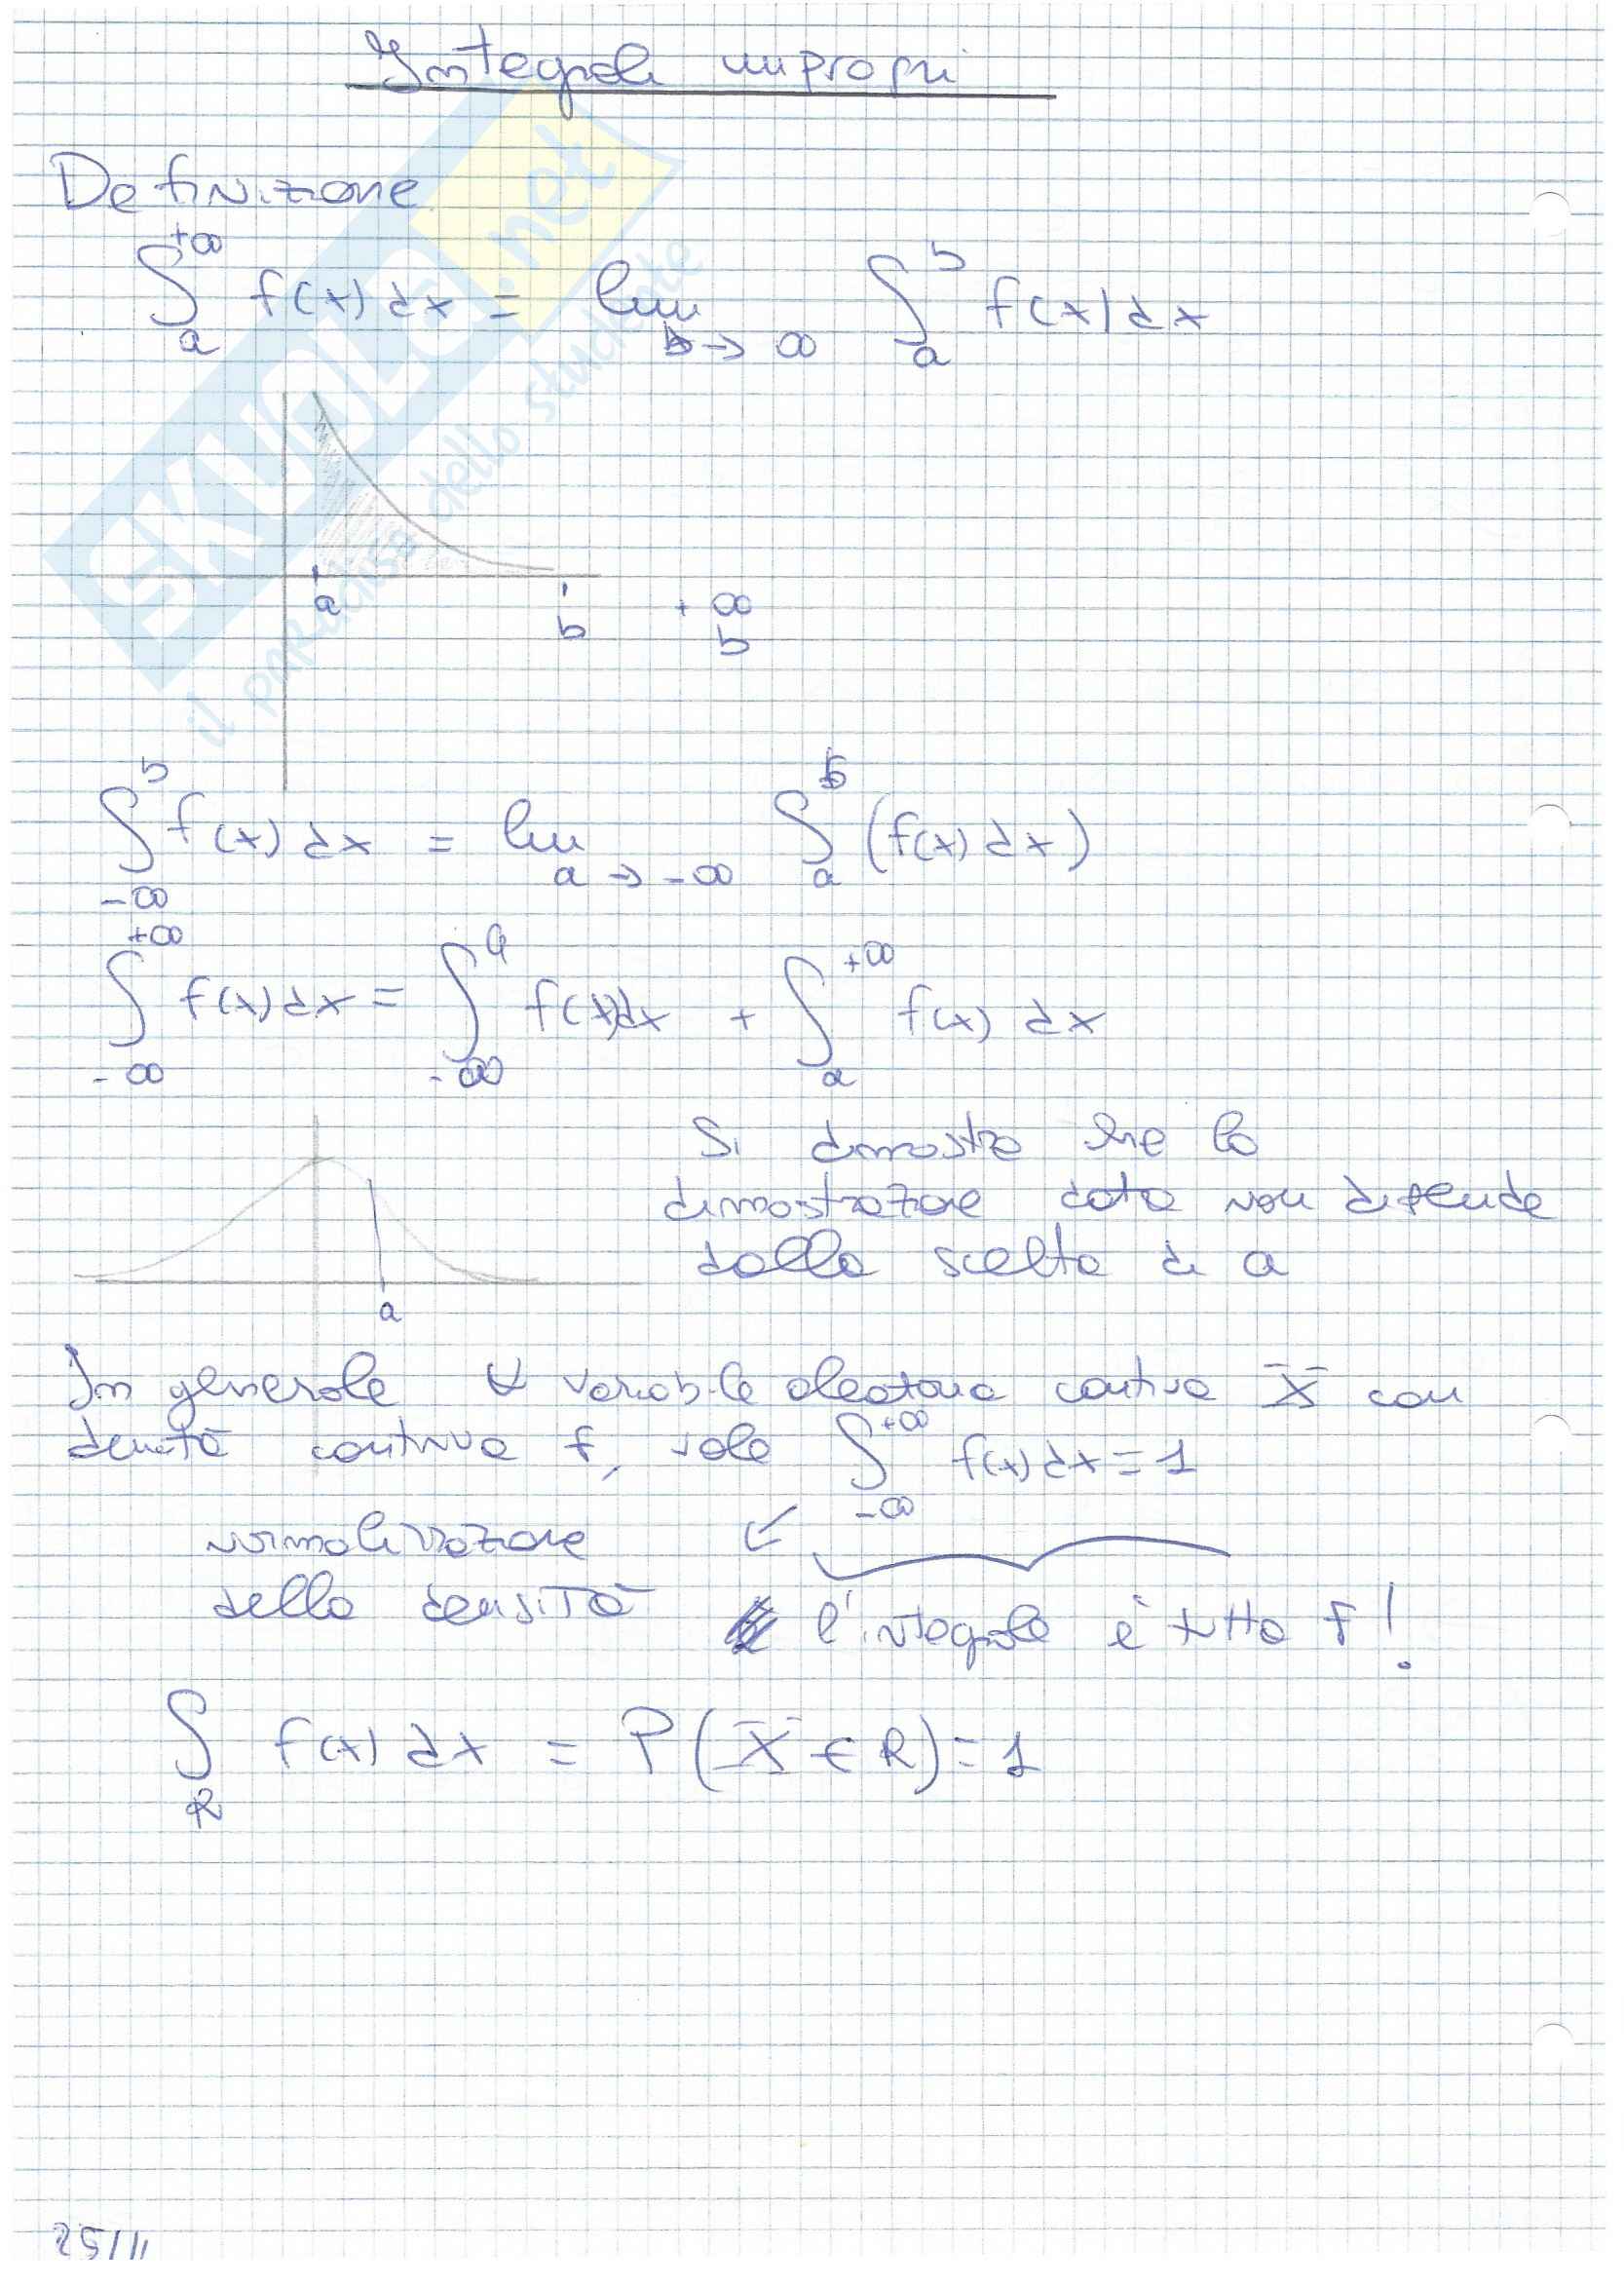 Integrali impropri
Definizione
∫_a^{+∞} f(x) dx = lim_{b→∞} ∫_a^b f(x) dx
a
b
+∞
b
∫_{-∞}^b f(x) dx = lim_{a→-∞} ∫_a^b (f(x) dx)
∫_{-∞}^{+∞} f(x) dx = ∫_{-∞}^a f(x) dx + ∫_a^{+∞} f(x) dx
Si dimostra che la
dimostrazione data non dipende
dalla scelta di a
a
In generale ∀ variabile aleatoria continua X con
densità continua f, vale ∫_{-∞}^{+∞} f(x) dx = 1
normalizzazione ↙
della densità l'integrale è tutta f!
∫_R f(x) dx = P(X ∈ R) = 1
25/11
SKUOLA.net
il paradiso dello studente